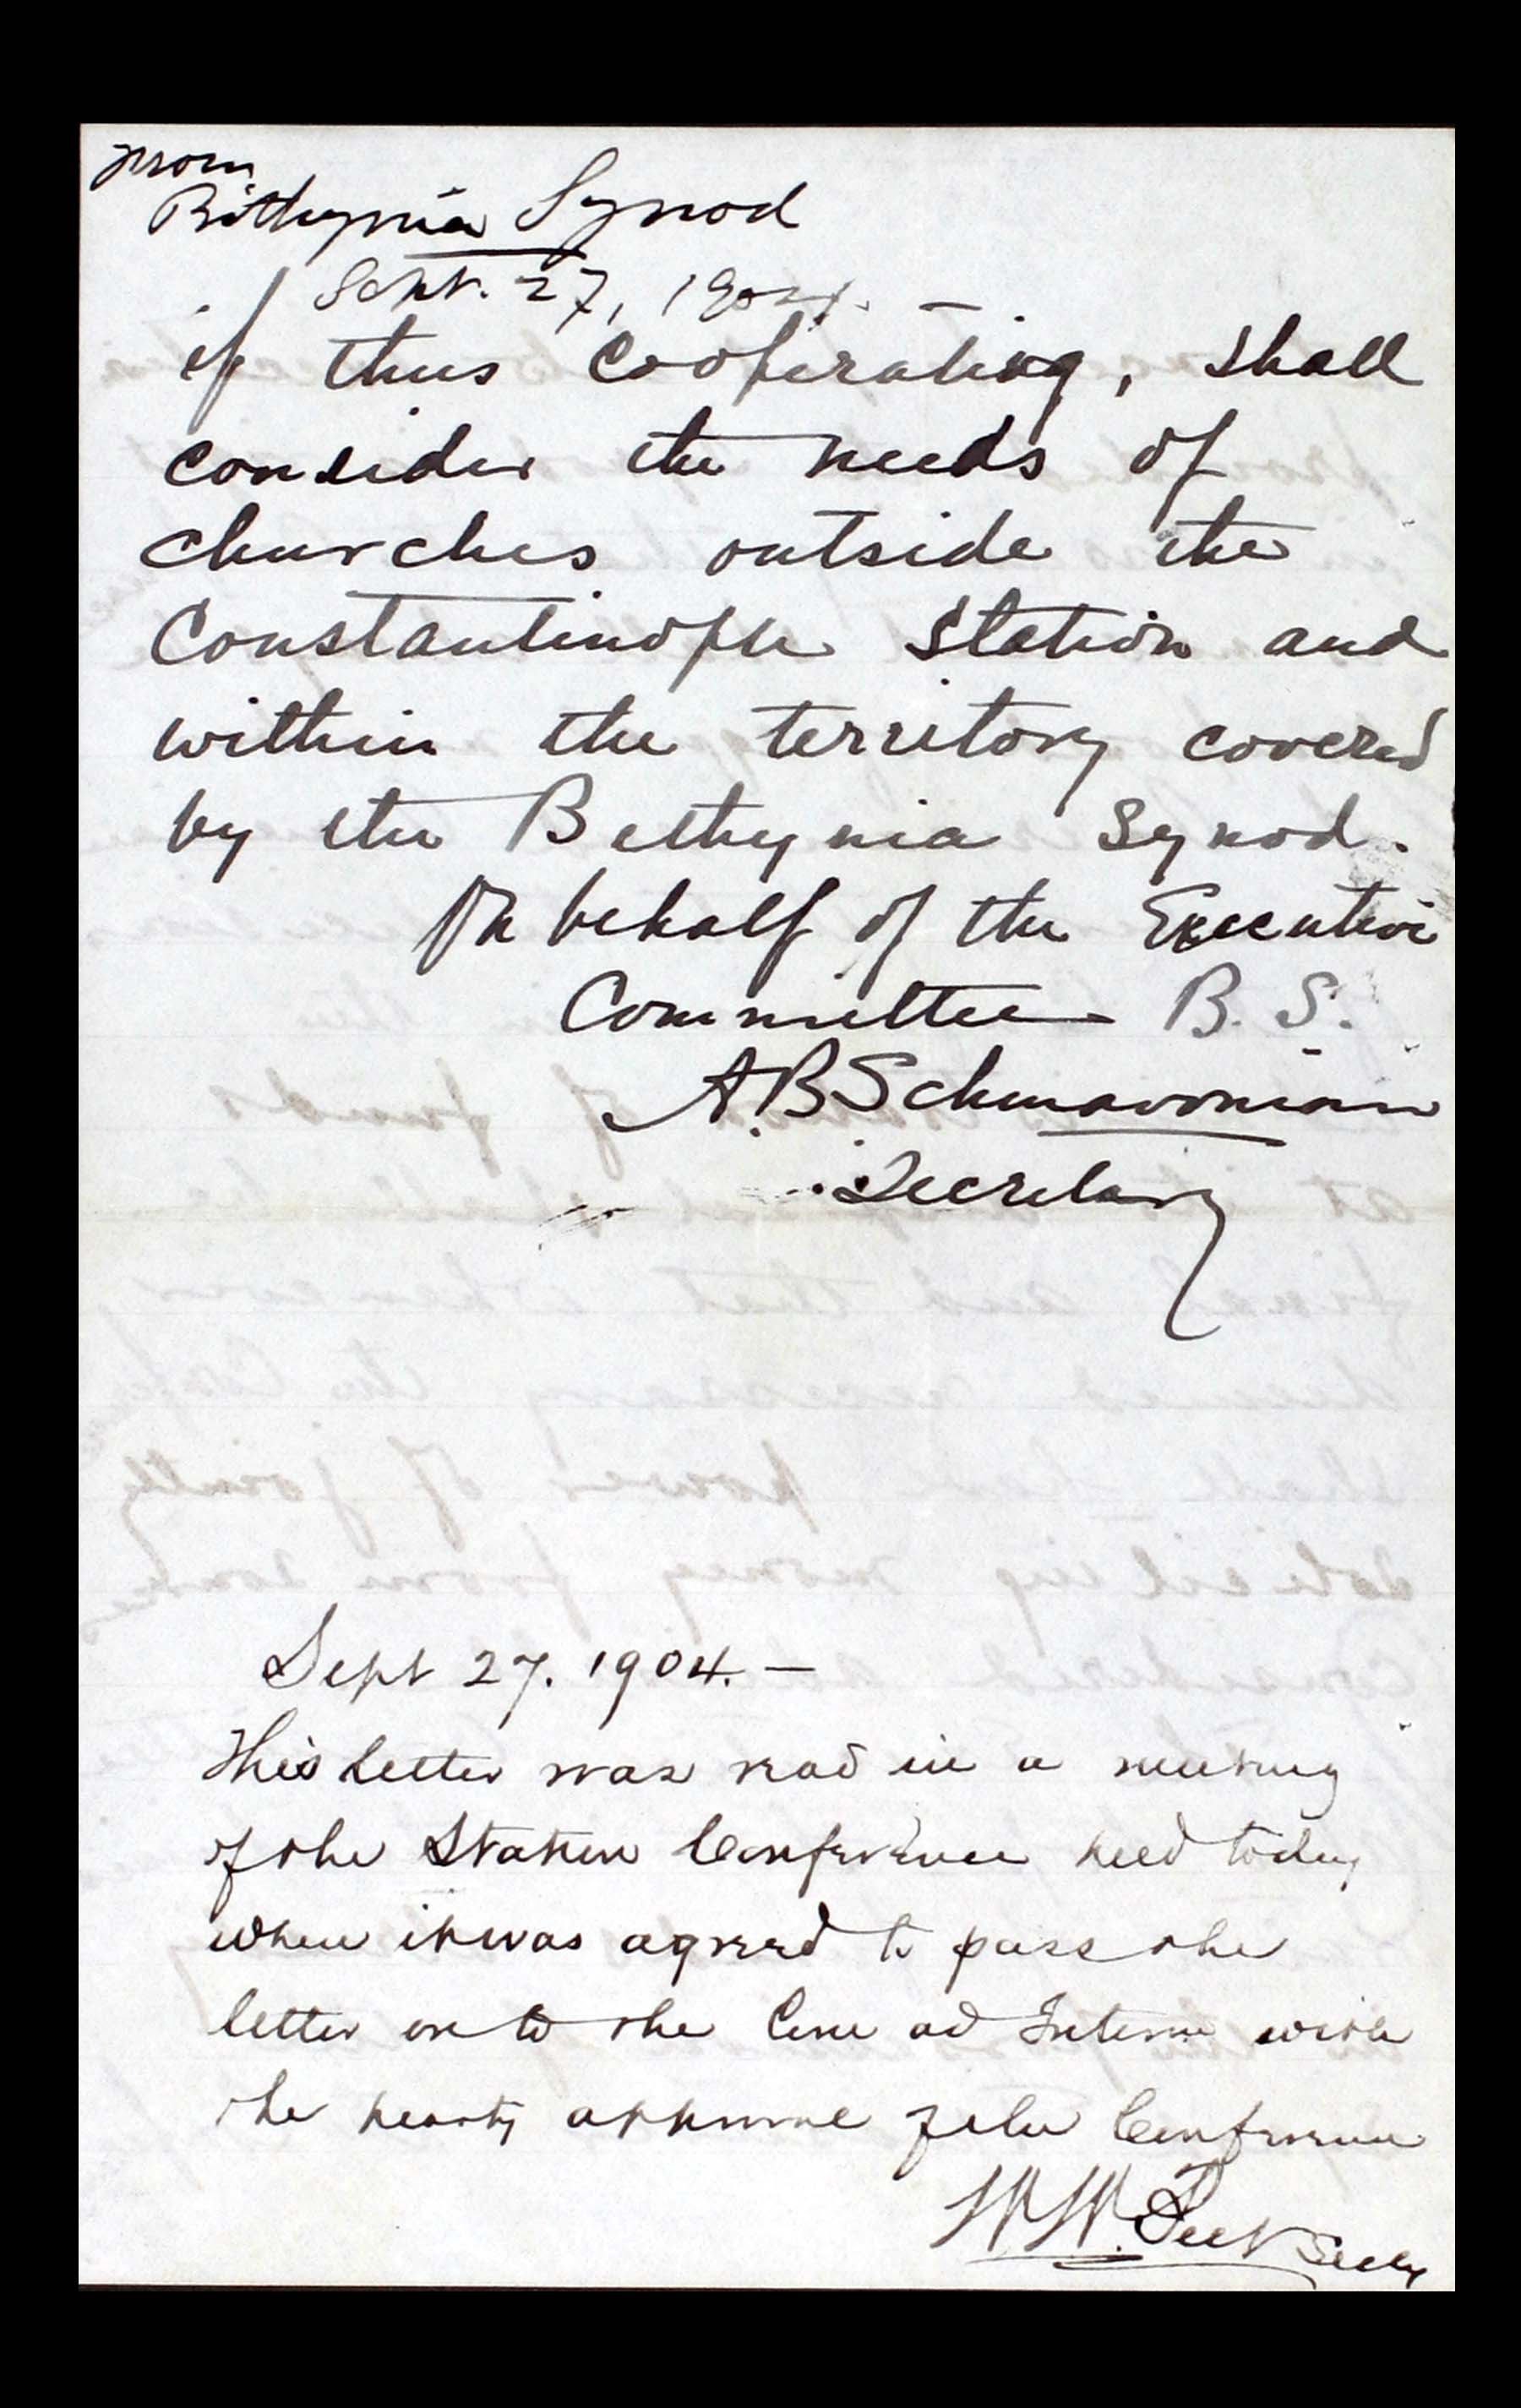 From
Bithynia Synod
Sept. 27, 1904. —
if thus Cooperating, shall
consider the needs of
churches outside the
Constantinople Station and
within the territory covered
by the Bithynia Synod.
On behalf of the Executive
Committee B. S.
A. B. Schmavonian
Secretary
Sept 27. 1904. —
This letter was read in a meeting
of the Station Conference held today
when it was agreed to pass the
letter on to the Com ad Interim with
the hearty approval of the Conference
W. W. Peet Secty